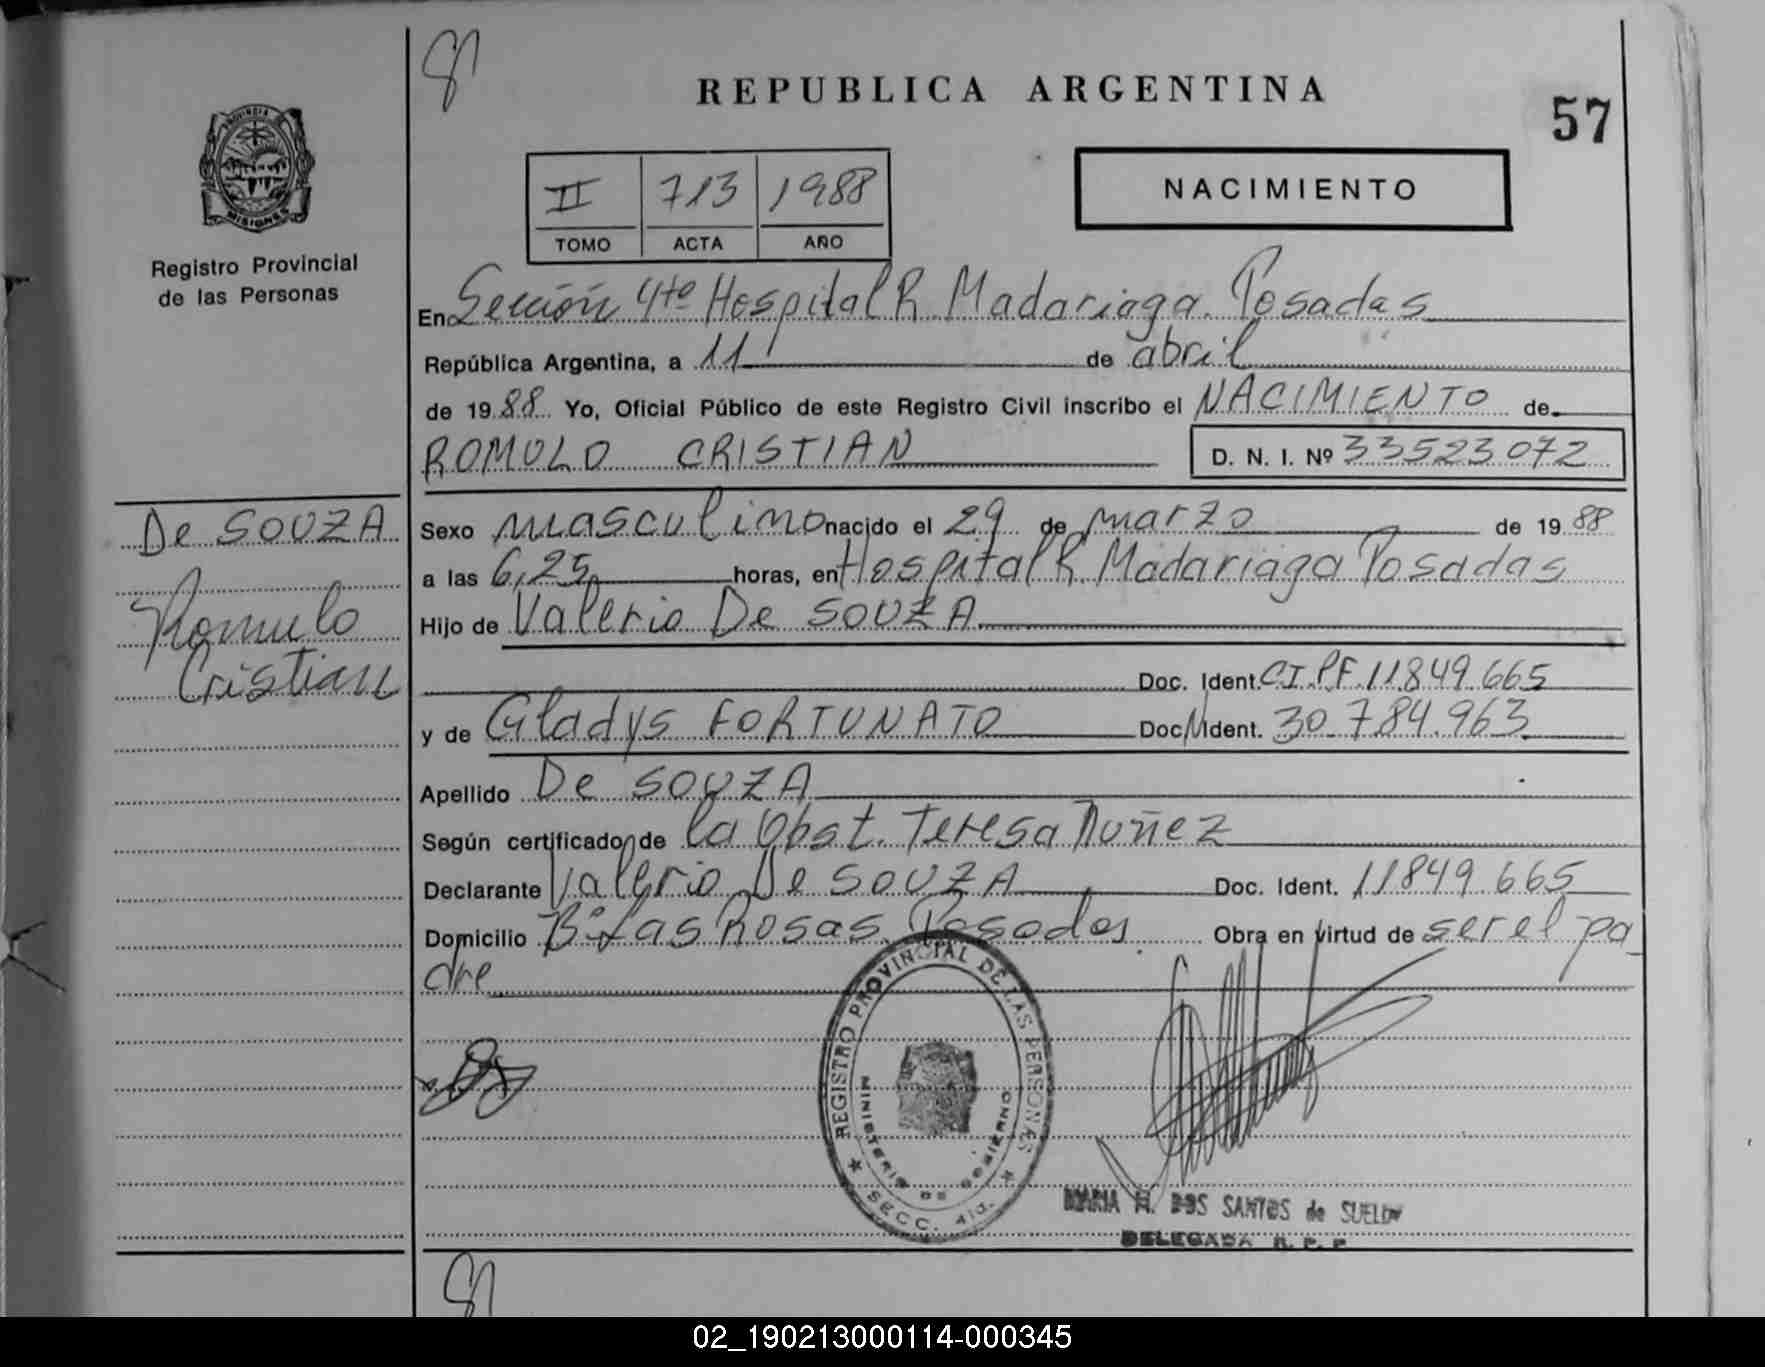 REPUBLICA ARGENTINA
57
PROVINCIA DE
MISIONES
Registro Provincial
de las Personas
II 713 1988
TOMO ACTA AÑO
NACIMIENTO
En Sección 4ta Hospital R. Madariaga. Posadas
República Argentina, a 11 de abril
de 1988 Yo, Oficial Público de este Registro Civil inscribo el NACIMIENTO de
ROMULO CRISTIAN D. N. I. Nº 33523072
De SOUZA
Romulo
Cristian
Sexo masculino nacido el 29 de marzo de 1988
a las 6,25 horas, en Hospital R. Madariaga Posadas
Hijo de Valerio De SOUZA
Doc. Ident. CI.PF.11.849.665
y de Gladys FORTUNATO Doc. Ident. 30.784.963
Apellido De SOUZA
Según certificado de la Obst. Teresa Nuñez
Declarante Valerio De SOUZA Doc. Ident. 11849.665
Domicilio Bº Las Rosas. Posadas Obra en virtud de ser el pa
dre
REGISTRO PROVINCIAL DE LAS PERSONAS
MINISTERIO DE GOBIERNO
SECC. 4ta.
MARIA H. DOS SANTOS de SUELDO
DELEGADA R. P. P
02_190213000114-000345